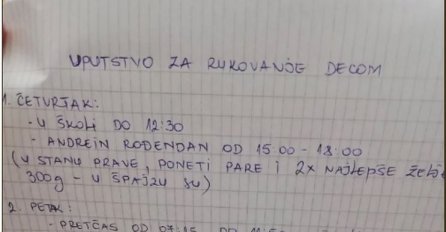 UPUTSTVO ZA RUKOVANJE DECOM
1. ČETVRTAK:
- U ŠKOLI DO 12:30
- ANDREIN ROĐENDAN OD 15:00 - 18:00
(U STANU PRAVE, PONETI PARE I 2X NAJLEPŠE ŽELJE
300g - U ŠPAJZU SU)
2. PETAK:
- PRETČAS OD 07:15 DO